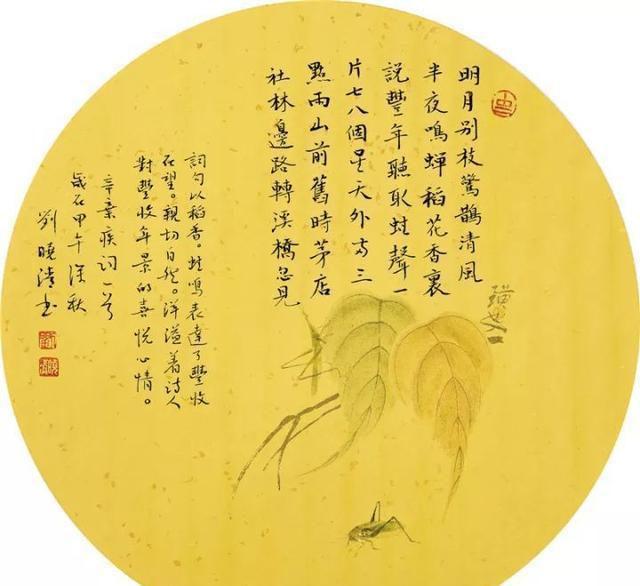 明月别枝驚鵲清風
半夜鳴蝉稻花香裏
説豐年聽取蛙聲一
片七八個星天外两三
點雨山前舊時茅店
社林邊路轉溪橋忽見
詞句以稻香。蛙鳴表達了豐收
在望。親切自然。洋溢着詩人
對豐收年景的喜悦心情。
辛棄疾詞一首
歲在甲午深秋
劉曉清书